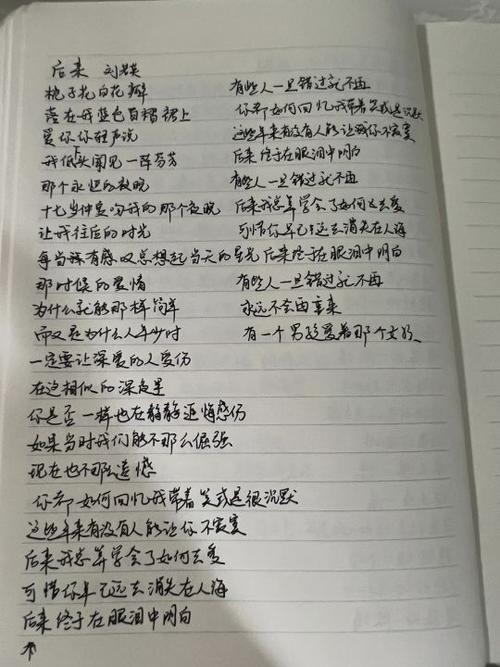 后来 刘若英
栀子花白花瓣
落在我蓝色百褶裙上
爱你你轻声说
我低头闻见一阵芬芳
那个永恒的夜晚
十七岁仲夏吻我的那个夜晚
让我往后的时光
每当有感叹总想起当天的星光
那时候的爱情
为什么就能那样简单
而又是为什么人年少时
一定要让深爱的人受伤
在这相似的深夜里
你是否一样也在静静追悔感伤
如果当时我们能不那么倔强
现在也不那么遗憾
你都如何回忆我带着笑或是很沉默
这些年来有没有人能让你不寂寞
后来我总算学会了如何去爱
可惜你早已远去消失在人海
后来终于在眼泪中明白
有些人一旦错过就不再
你都如何回忆我带笑或是沉默
这些年来有没有人能让你不寂寞
后来终于在眼泪中明白
有些人一旦错过就不再
后来我总算学会了如何去爱
可惜你早已远去消失在人海
后来终于在眼泪中明白
有些人一旦错过就不再
永远不会再重来
有一个男孩爱着那个女孩